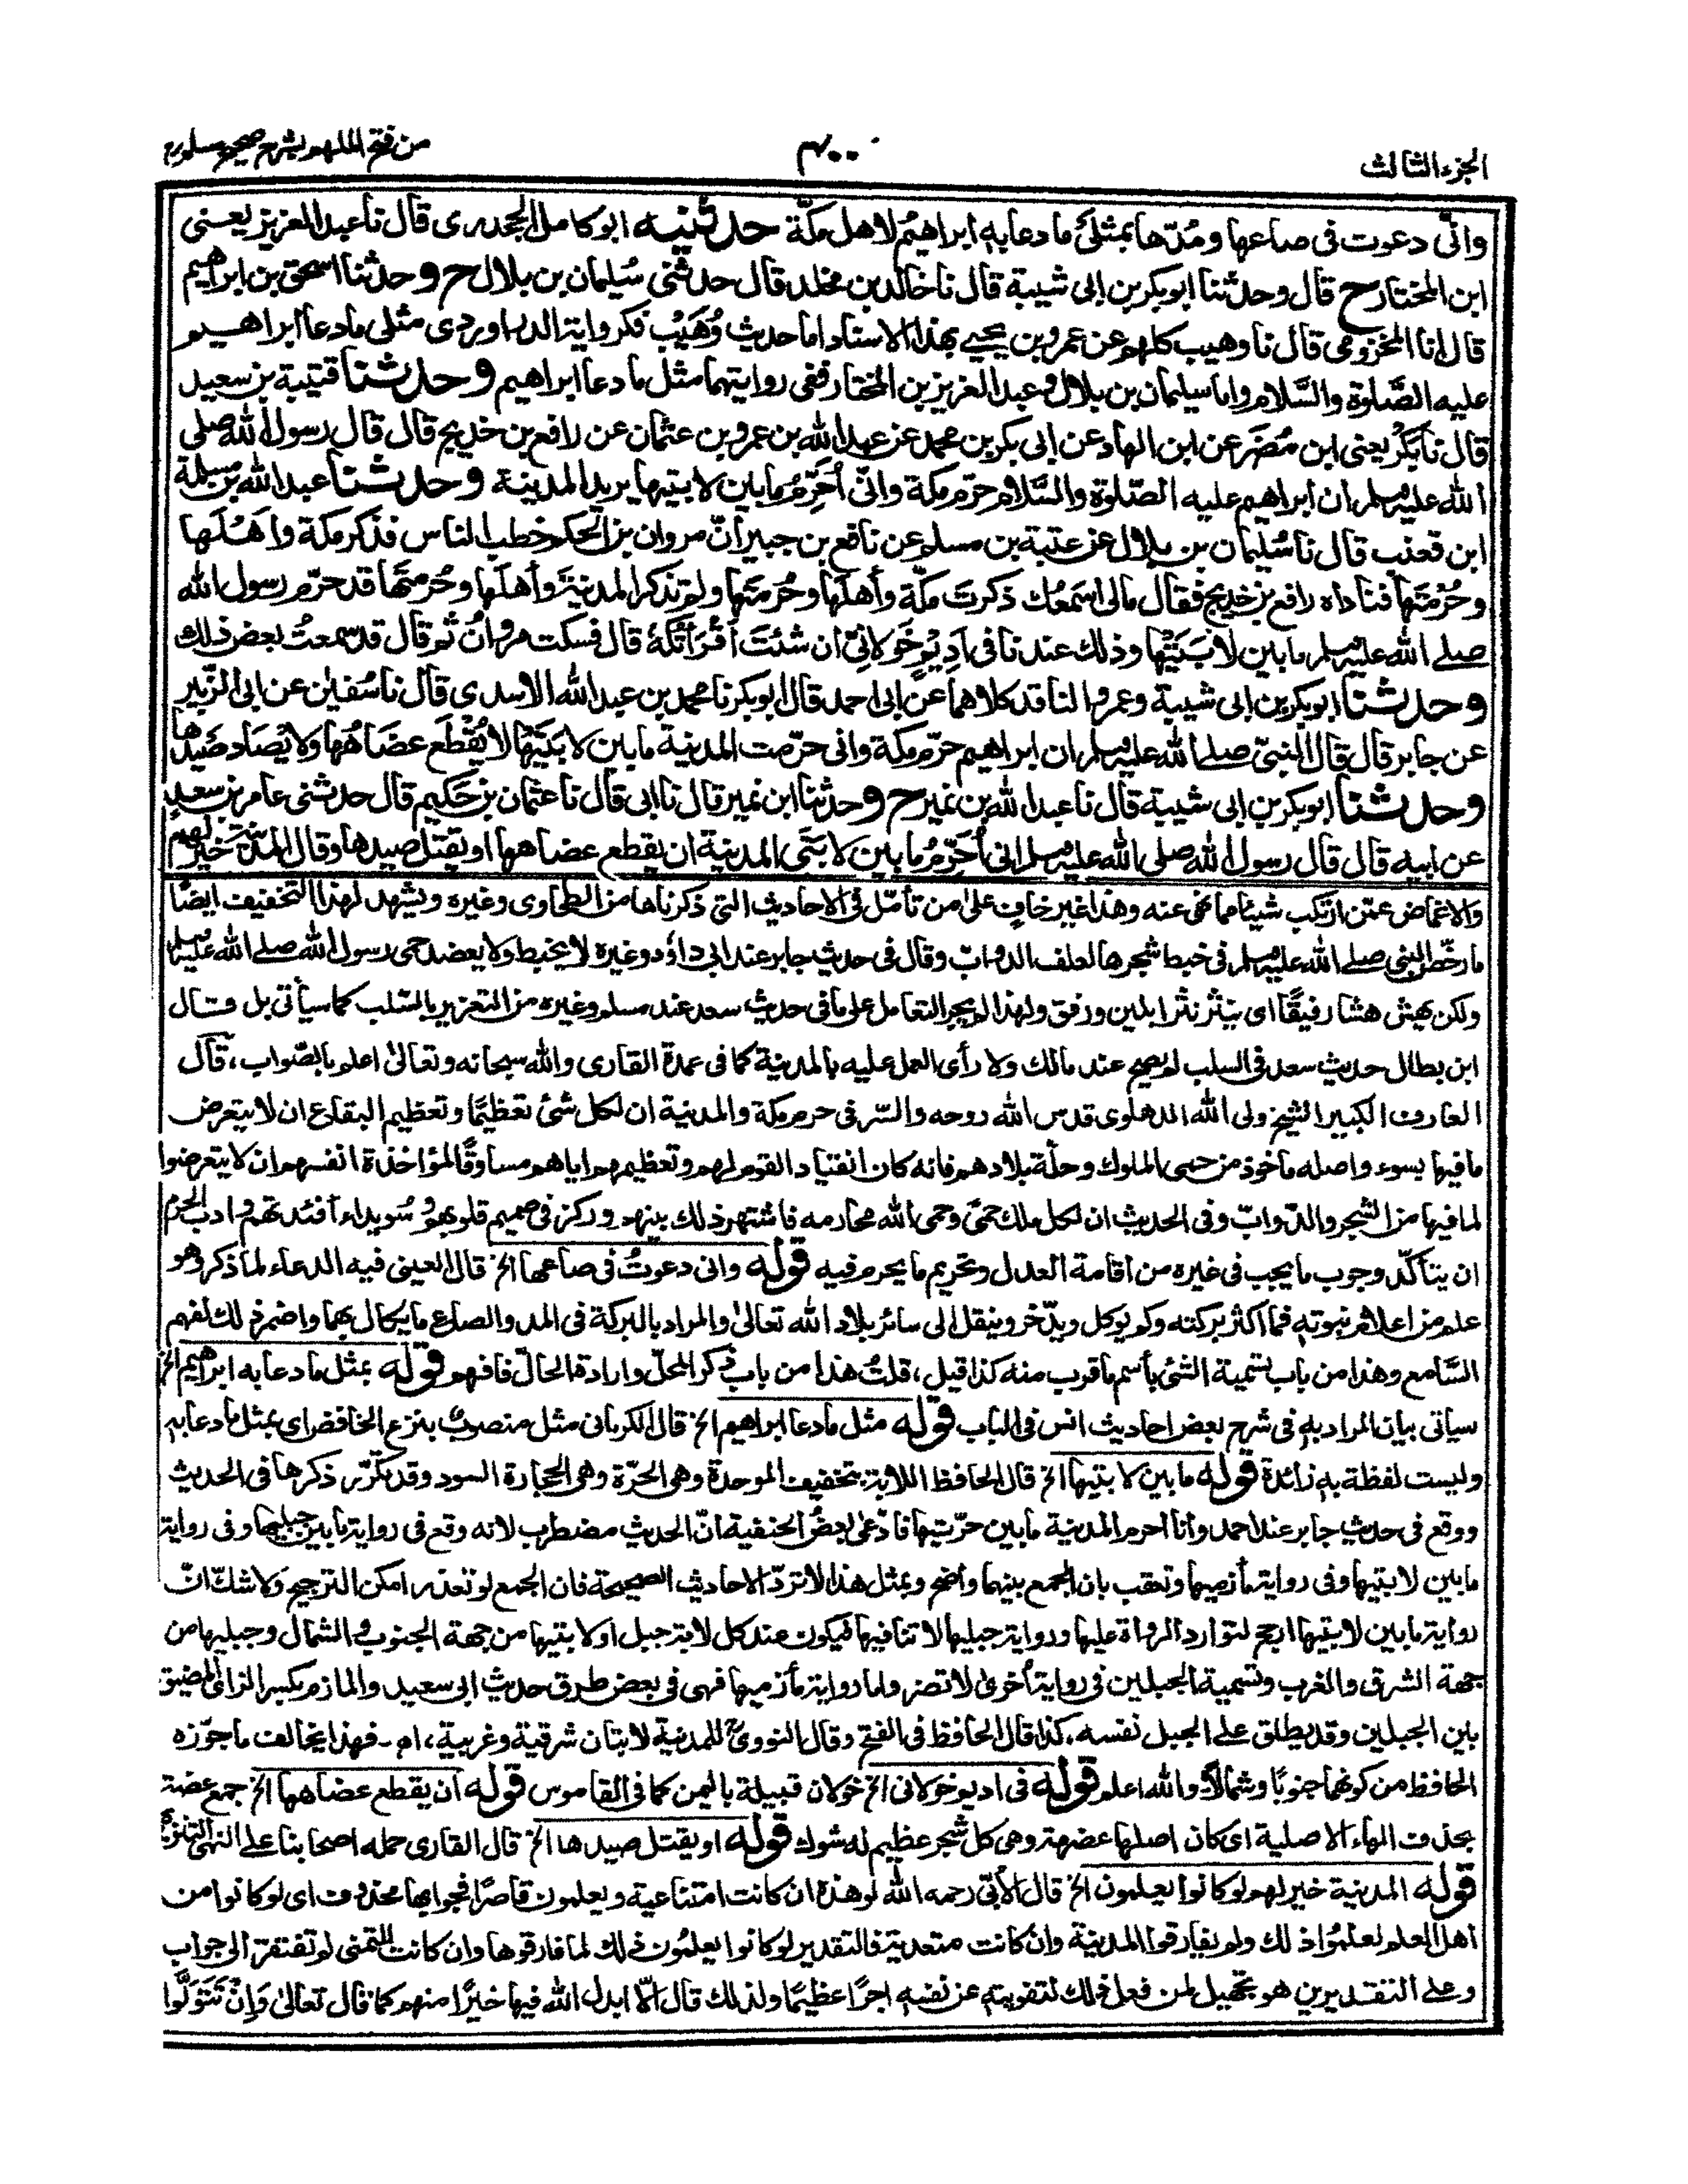 الجزء الثالث
٤٠٠
من فتح الملهم بشرح صحيح مسلم
وانّى دعوت فى صاعها ومُدّها بمثلَىْ ما دعا به ابراهيمُ لاهل مكّة حدثنيه ابو كامل الجحدرى قال نا عبد العزيز يعنى
ابن المختار ح قال وحدثنا ابوبكر بن ابى شيبة قال نا خالد بن مخلد قال حدثنى سُليمان بن بلال ح وحدثنا اسحق بن ابراهيم
قال انا المخزومى قال نا وهيب كلهم عن عمرو بن يحيى بهذا الاسناد اما حديث وُهَيْب فكرواية الدراوردى مثلى ما دعا ابراهيم
عليه الصَّلوة والسَّلام واما سليمان بن بلال وعبد العزيز بن المختار ففى روايتهما مثل ما دعا ابراهيم وحدثنا قتيبة بن سعيد
قال نا بَكْر يعنى ابن مُضَر عن ابن الهاد عن ابى بكر بن محمد عن عبد الله بن عمرو بن عثمان عن رافع بن خديج قال قال رسول الله صلى
الله عليه وسلم ان ابراهيم عليه الصّلوة والسَّلام حرّم مكة وانّى اُحَرِّمُ ما بين لابتيها يريد المدينة وحدثنا عبد الله بن مسلمة
ابن قعنب قال نا سُليمان بن بلال عن عتبة بن مسلم عن نافع بن جبير انّ مروان بن الحكم خطب الناس فذكر مكة واَهْلَها
وحُرْمَتَها فناداه رافع بن خديج فقال مالى اسمَعُك ذكرتَ مكّة وأهلَها وحُرمتَها ولم تذكر المدينةَ وأهلَها وحُرمتَها قد حرّم رسول الله
صلى الله عليه وسلم ما بين لابَتَيْها وذلك عندنا فى اَدِيْمٍ خَوْلانِىٍّ ان شئتَ اَقْرَأْتُكَهُ قال فسكت مروانُ ثم قال قد سمعتُ بعض ذلك
وحدثنا ابوبكر بن ابى شيبة وعمرو الناقد كلاهما عن ابى احمد قال ابوبكر نا محمد بن عبد الله الاسدى قال نا سُفيٰن عن ابى الزّبير
عن جابر قال قال النبىّ صلى الله عليه وسلم ان ابراهيم حرّم مكة وانى حرّمت المدينة ما بين لابَتَيْها لا يُقْطَع عضَاهُها ولا يُصَاد صَيْدُها
وحدثنا ابوبكر بن ابى شيبة قال نا عبد الله بن نمير ح وحدثنا ابن نمير قال نا ابى قال نا عثمان بن حَكيم قال حدثنى عامر بن سعيد
عن ابيه قال قال رسول الله صلى الله عليه وسلم انى اُحَرِّمُ ما بين لابَتَىِ المدينة ان يقطع عضاهها او يقتل صيدها وقال المدينة خير لهم
والاغماض عمّن ارتكب شيئا مما نهى عنه وهذا غير خافٍ على من تأمّل فى الاحاديث التى ذكرناها من الطحاوى وغيره ويشهد لهذا التخفيف ايضًا
ما رخّص النبى صلى الله عليه وسلم فى خبط شجرها لعلف الدوابّ وقال فى حديث جابر عند ابى داؤد وغيره لا يخبط ولا يعضد حمى رسول الله صلى الله عليه وسلم
ولكن يهش هشا رفيقًا اى ينثر نثرا بلين ورفق ولهذا لم يجر التعامل على ما فى حديث سعد عند مسلم وغيره من التعزير بالسّلب كما سيأتى بل قال
ابن بطال حديث سعد فى السلب لم يصح عند مالك ولا رأى العمل عليه بالمدينة كما فى عمدة القارى والله سبحانه وتعالى اعلم بالصّواب، قال
العارف الكبير الشيخ ولى الله الدهلوى قدس الله روحه والسّر فى حرم مكة والمدينة ان لكل شئ تعظيمًا وتعظيم البقاع ان لا يتعرض
ما فيها بسوء واصله مأخوذ من حمى الملوك وحلّة بلادهم فانه كان انقياد القوم لهم وتعظيمهم اياهم مساوقًا لمؤاخذة انفسهم ان لا يتعرضوا
لما فيها من الشجر والدّوابّ وفى الحديث ان لكل ملك حمًى وحمى الله محارمه فاشتهر ذلك بينهم وركز فى صميم قلوبهم وسُويداء افئدتهم وادب الحرم
ان يتأكّد وجوب ما يجب فى غيره من اقامة العدل وتحريم ما يحرم فيه قوله وانى دعوتُ فى صاعها الخ قال العينى فيه الدعاء لما ذكر وهو
علم من اعلام نبوته فما اكثر بركته وكم يوكل ويدّخر وينقل الى سائر بلاد الله تعالى والمراد بالبركة فى المد والصاع ما يكال بهما واضمر ذلك لفهم
السَّامع وهذا من باب تسمية الشئ باسم ما قرب منه كذا قيل، قلتُ هذا من باب ذكر المحلّ وارادة الحالّ فافهم قوله بمثل ما دعا به ابراهيم الخ
سياتى بيان المراد به فى شرح بعض احاديث انس فى الباب قوله مثل ما دعا ابراهيم الخ قال الكرمانى مثل منصوب بنزع الخافض اى بمثل ما دعا به
وليست لفظة به زائدة قوله ما بين لابتيها الخ قال الحافظ اللابة بتخفيف الموحدة وهى الحرّة وهى الحجارة السود وقد تكرّر ذكرها فى الحديث
ووقع فى حديث جابر عند احمد وانا احرم المدينة ما بين حرّتيها فادّعى بعضُ الحنفية انّ الحديث مضطرب لانه وقع فى رواية ما بين جبليها وفى رواية
ما بين لابتيها وفى رواية مأزميها وتعقب بان الجمع بينهما واضح وبمثل هذا لا تردّ الاحاديث الصحيحة فان الجمع لو تعذر امكن الترجيح ولا شكّ انّ
رواية ما بين لابتيها ارجح لتوارد الرواة عليها ورواية جبليها لا تنافيها فيكون عند كل لابة جبل او لابتيها من جهة الجنوب والشمال وجبليها من
جهة الشرق والغرب وتسمية الجبلين فى رواية اُخرى لا تضر واما رواية مأزميها فهى فى بعض طرق حديث ابى سعيد والمازم بكسر الزاى المضيق
بين الجبلين وقد يطلق على الجبل نفسه، كذا قال الحافظ فى الفتح وقال النووىّ للمدينة لابتان شرقية وغربية، اه۔ فهذا يخالف ما جوّزه
الحافظ من كونهما جنوبًا وشمالًا والله اعلم قوله فى اديم خولانى الخ خولان قبيلة باليمن كما فى القاموس قوله ان يقطع عضاهها الخ جمع عضة
بحذف الهاء الاصلية اى كان اصلها عضهة وهى كل شجر عظيم له شوك قوله او يقتل صيدها الخ قال القارى حمله اصحابنا على النهى التنزيهى
قوله المدينة خير لهم لو كانوا يعلمون الخ قال الأبّى رحمه الله لو هذه ان كانت امتناعية ويعلمون قاصرًا فجوابها محذوف اى لو كانوا من
اهل العلم لعلمُوا ذلك ولم يفارقوا المدينة وان كانت متعدية فالتقدير لو كانوا يعلمُون ذلك لما فارقوها وان كانت للتمنى لم تفتقر الى جواب
وعلى التقديرين هو تجهيل لمن فعل ذلك لتفويته عن نفسه اجرًا عظيمًا ولذلك قال الّا ابدل الله فيها خيرًا منهم كما قال تعالى وَاِنْ تَتَوَلَّوْا